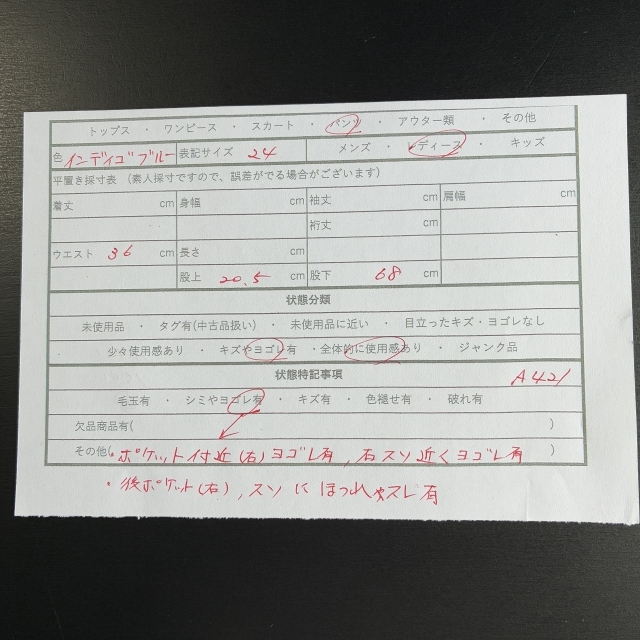 トップス ・ ワンピース ・ スカート ・ パンツ ・ アウター類 ・ その他
色 インディゴブルー 表記サイズ 24 メンズ ・ レディース ・ キッズ
平置き採寸表 (素人採寸ですので、誤差がでる場合がございます)
着丈 cm 身幅 cm 袖丈 cm 肩幅 cm
裄丈 cm
ウエスト 36 cm 長さ cm
股上 20.5 cm 股下 68 cm
状態分類
未使用品 ・ タグ有(中古品扱い) ・ 未使用品に近い ・ 目立ったキズ・ヨゴレなし
少々使用感あり ・ キズやヨゴレ有 ・全体的に使用感あり ・ ジャンク品
状態特記事項 A421
毛玉有 ・ シミやヨゴレ有 ・ キズ有 ・ 色褪せ有 ・ 破れ有
欠品商品有( )
その他(・ポケット付近(右)ヨゴレ有,右スソ近くヨゴレ有 )
・後ポケット(右),スソにほつれやスレ有